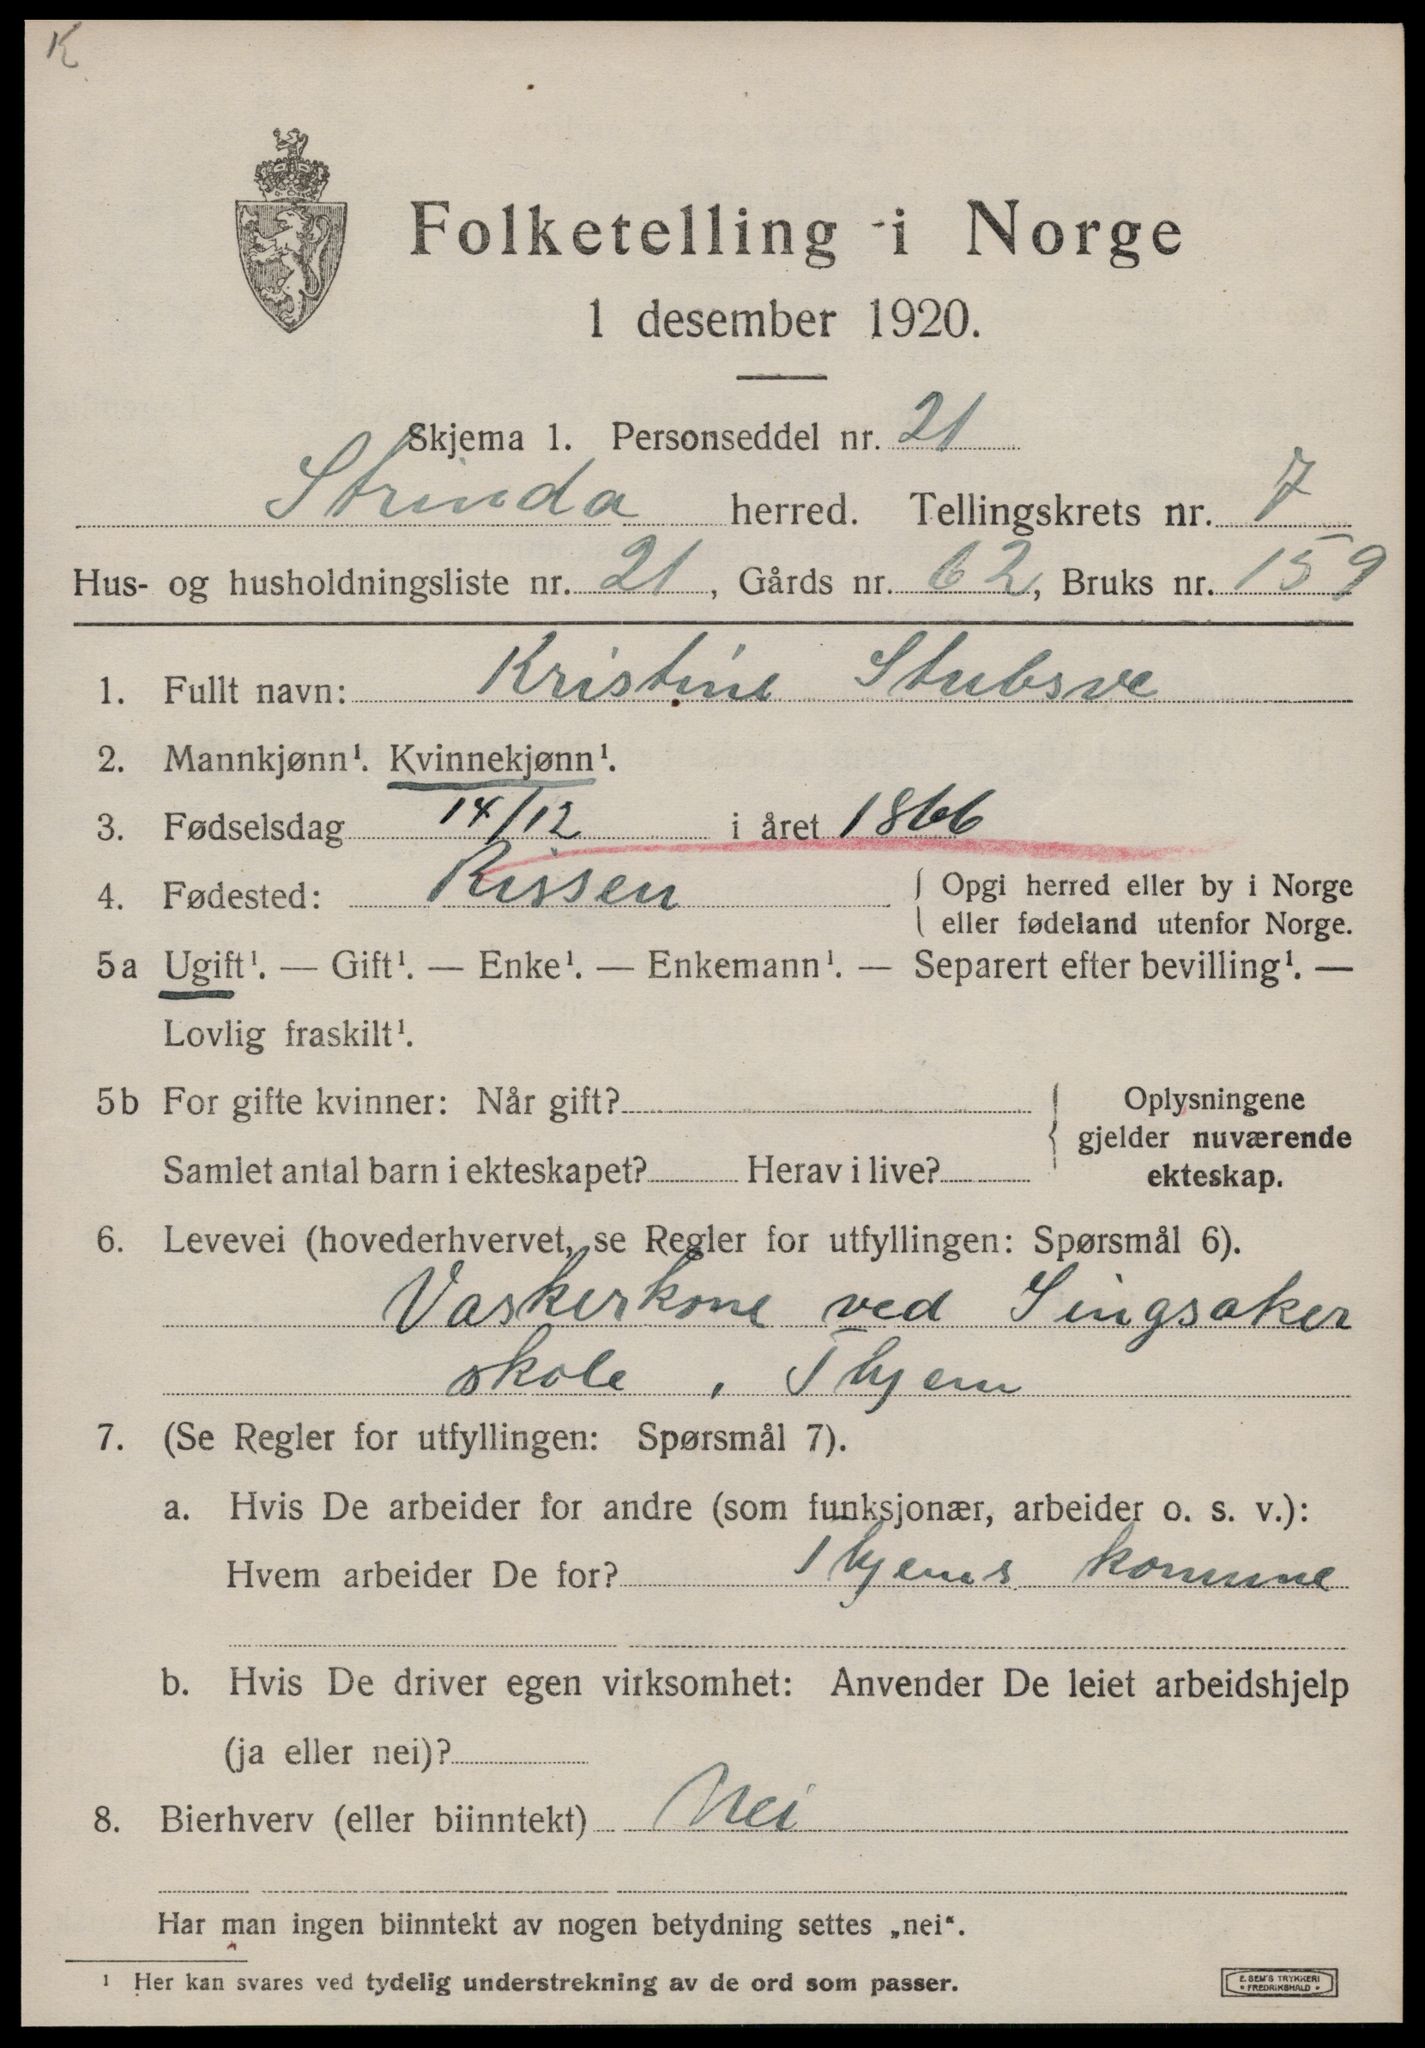 K
Folketelling i Norge
1 desember 1920.
Skjema 1. Personseddel nr. 21
Strinda herred. Tellingskrets nr. 7
Hus- og husholdningsliste nr. 21, Gårds nr. 62, Bruks nr. 159
1. Fullt navn: Kristine Stubsve
2. Mannkjønn¹. Kvinnekjønn¹.
3. Fødselsdag 14/12 i året 1866
4. Fødested: Rissen { Opgi herred eller by i Norge
eller fødeland utenfor Norge.
5a Ugift¹. — Gift¹. — Enke¹. — Enkemann¹. — Separert efter bevilling¹. —
Lovlig fraskilt¹.
5b For gifte kvinner: Når gift? { Oplysningene
gjelder nuværende
Samlet antal barn i ekteskapet? Herav i live? ekteskap.
6. Levevei (hovederhvervet, se Regler for utfyllingen: Spørsmål 6).
Vaskerkone ved Singsaker
skole, Thjem
7. (Se Regler for utfyllingen: Spørsmål 7).
a. Hvis De arbeider for andre (som funksjonær, arbeider o. s. v.):
Hvem arbeider De for? Thjems komune
b. Hvis De driver egen virksomhet: Anvender De leiet arbeidshjelp
(ja eller nei)?
8. Bierhverv (eller biinntekt) Nei
Har man ingen biinntekt av nogen betydning settes „nei“.
¹ Her kan svares ved tydelig understrekning av de ord som passer.
E. SEM'S TRYKKERI
* FREDRIKSHALD *